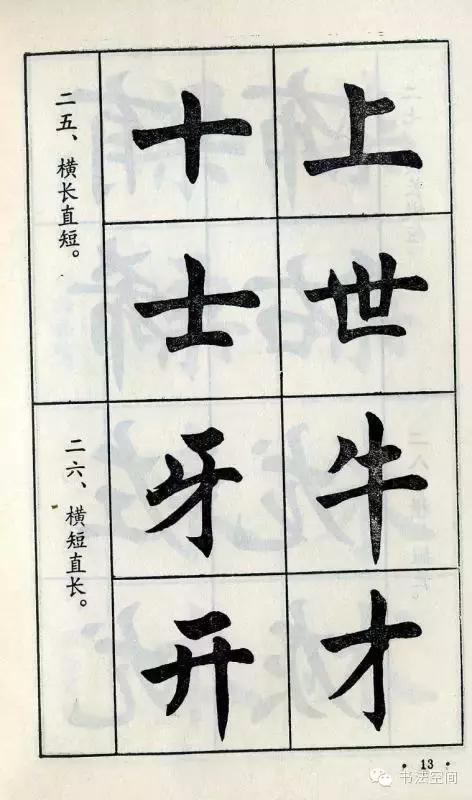 二五、横长直短。
十上
士世
二六、横短直长。
牙牛
开才
• 13 •
书法空间